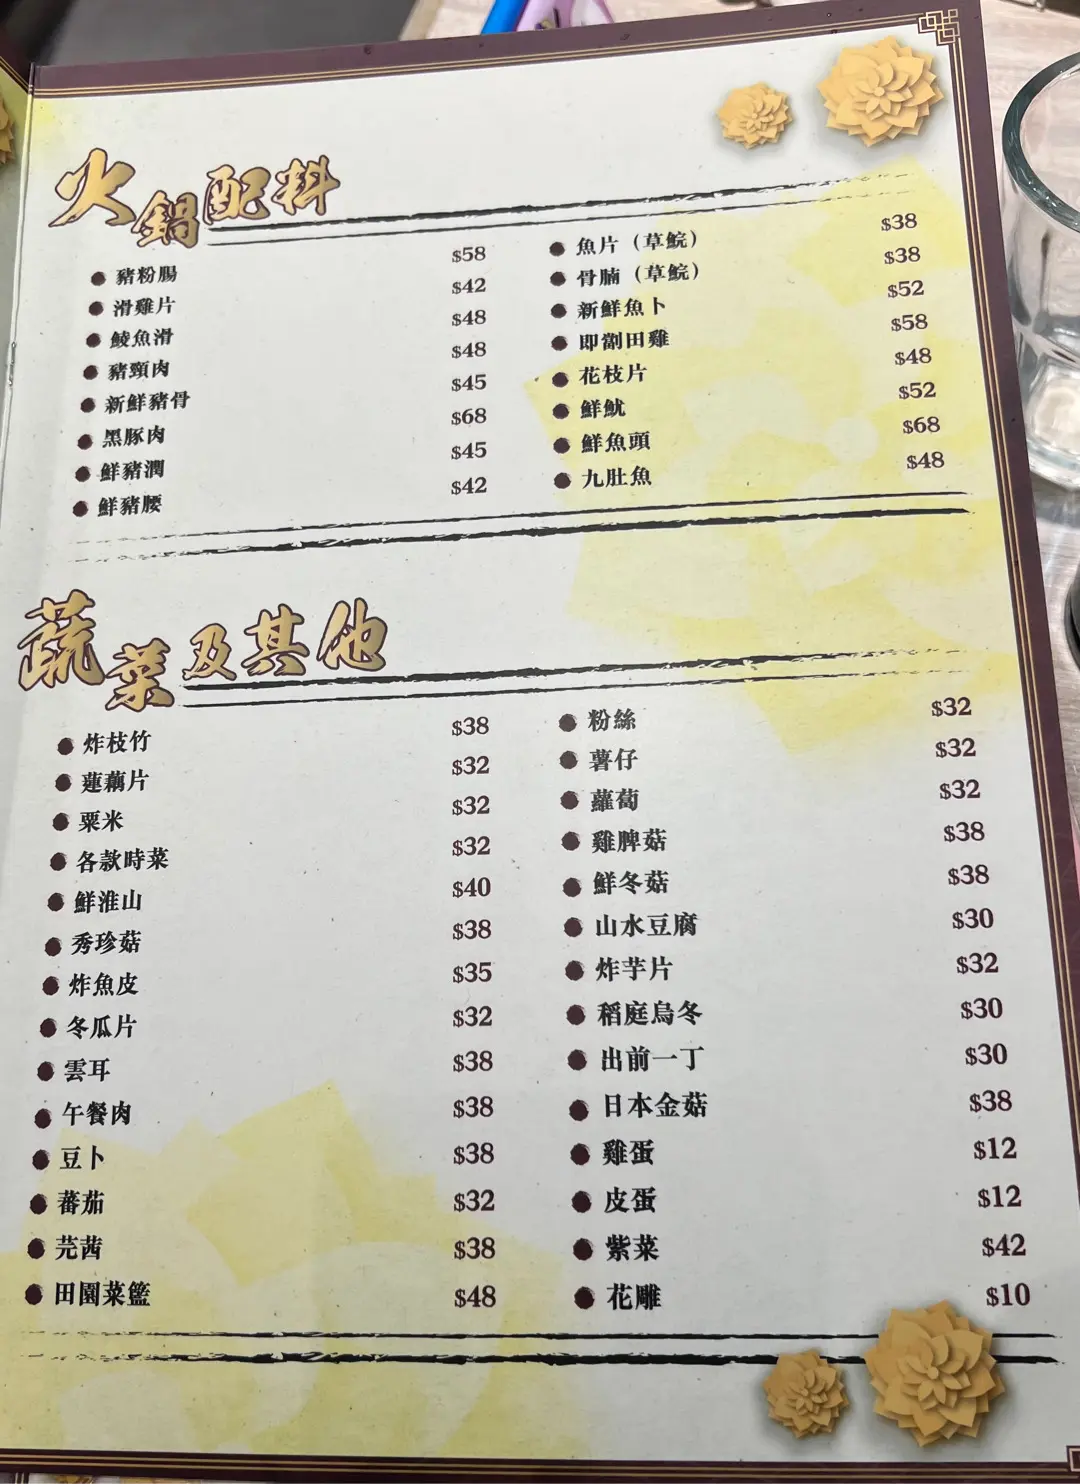 火鍋配料
豬粉腸 $58
滑雞片 $42
鯪魚滑 $48
豬頸肉 $48
新鮮豬骨 $45
黑豚肉 $68
鮮豬潤 $45
鮮豬腰 $42
魚片（草鯇） $38
骨腩（草鯇） $38
新鮮魚卜 $52
即劏田雞 $58
花枝片 $48
鮮魷 $52
鮮魚頭 $68
九肚魚 $48
蔬菜及其他
炸枝竹 $38
蓮藕片 $32
粟米 $32
各款時菜 $32
鮮淮山 $40
秀珍菇 $38
炸魚皮 $35
冬瓜片 $32
雲耳 $38
午餐肉 $38
豆卜 $38
蕃茄 $32
芫茜 $38
田園菜籃 $48
粉絲 $32
薯仔 $32
蘿蔔 $32
雞脾菇 $38
鮮冬菇 $38
山水豆腐 $30
炸芋片 $32
稻庭烏冬 $30
出前一丁 $30
日本金菇 $38
雞蛋 $12
皮蛋 $12
紫菜 $42
花雕 $10